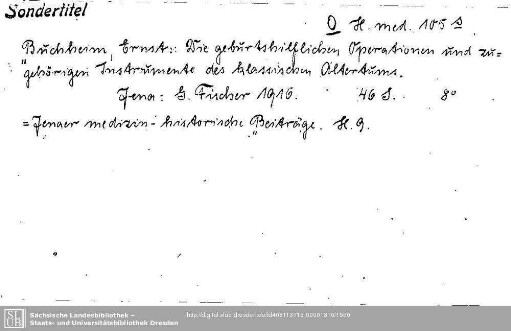 Sondertitel
O H. med. 105 s
Buchheim, Ernst: Die geburtshilflichen Operationen und zu=
gehörigen Instrumente des klassischen Altertums.
Jena: G. Fischer 1916. 46 S. 8°
= Jenaer medizin-historische Beiträge. H. 9.
Sächsische Landesbibliothek –
Staats- und Universitätsbibliothek Dresden